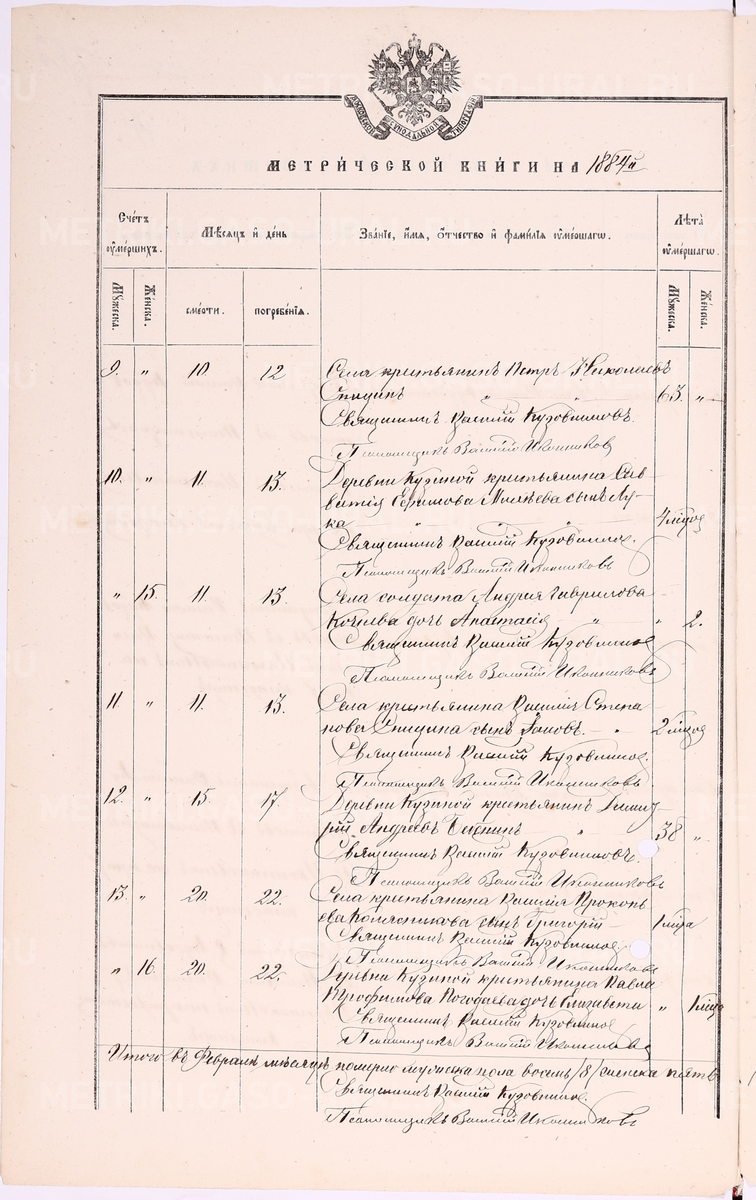 МОСКОВСКОЙ СѴНОДАЛЬНОЙ ТИПОГРАФІИ
МЕТРИЧЕСКОЙ КНИГИ НА 1884й
Счетъ оумершихъ. Мѣсяцъ и день Званіе, имя, отчество и фамилія оумершагѡ. Лѣта оумершагѡ.
Мꙋжеска. Женска. смерти. погребенія. Мꙋжеска. Женска.
9. " 10. 12 Села крестьянинъ Петръ Николаевъ
Спицинъ " " 63. "
Священникъ Василій Кузовниковъ.
Псаломщикъ Василій Иконниковъ
10. " 11. 13. Деревни Кузиной крестьянина Сав-
ватія Ефимова Михѣева сынъ Лу-
ка " " " 4 мѣсяц
Священникъ Василій Кузовниковъ.
Псаломщикъ Василій Иконниковъ
" 15. 11. 13. Села солдата Андрея Гаврилова
дочь Анастасія " " 2.
Священникъ Василій Кузовниковъ
Псаломщикъ Василій Иконниковъ
11. " 11. 13. Села крестьянина Василія Степа-
нова Спицина сынъ Іаковъ. " 2 мѣсяц
Священникъ Василій Кузовниковъ.
Псаломщикъ Василій Иконниковъ
12. " 15. 17. Деревни Кузиной крестьянинъ Димит-
рій Андреевъ " 38 "
Священникъ Василій Кузовниковъ.
Псаломщикъ Василій Иконниковъ
13. " 20. 22. Села крестьянина Василія Прокопь-
ева сынъ Григорій 1 мѣсяца
Священникъ Василій Кузовниковъ
Псаломщикъ Василій Иконниковъ
" 16. 20. 22. Деревни Кузиной крестьянина Павла
Трофимова Погодаева дочь Елизавета " 1 мѣсяца
Священникъ Василій Кузовниковъ
Псаломщикъ Василій Иконниковъ
Итого въ Февралѣ мѣсяцѣ померло мужеска пола восемь /8/ женска пять
Священникъ Василій Кузовниковъ.
Псаломщикъ Василій Иконниковъ